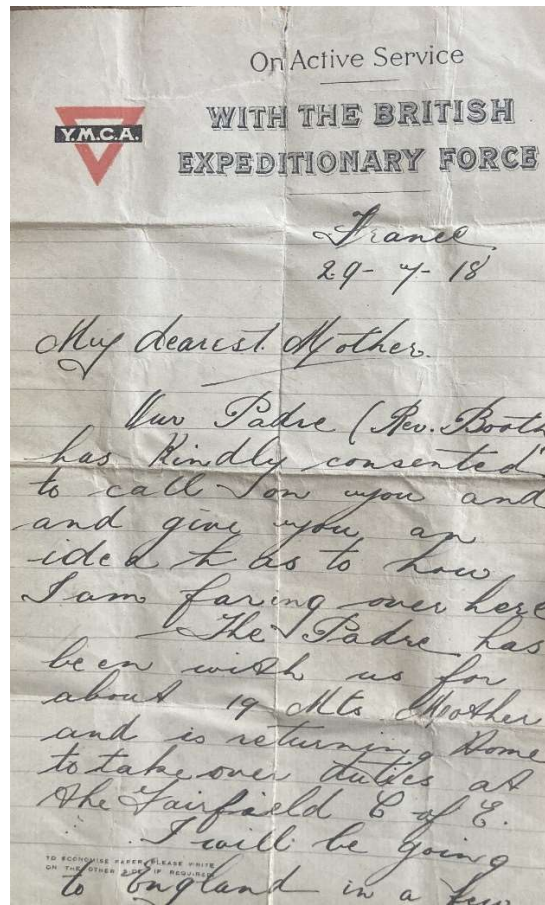 On Active Service
WITH THE BRITISH
EXPEDITIONARY FORCE
Y.M.C.A.
France
29-7-18
My dearest Mother.
Our Padre (Rev. Booth
has kindly consented
to call on you and
and give you an
idea as to how
I am faring over here
The Padre has
been with us for
about 19 Mts Mother
and is returning Home
to take over duties at
the Fairfield C of E.
I will be going
TO ECONOMISE PAPER, PLEASE WRITE
ON THE OTHER SIDE, IF REQUIRED
to England in a few